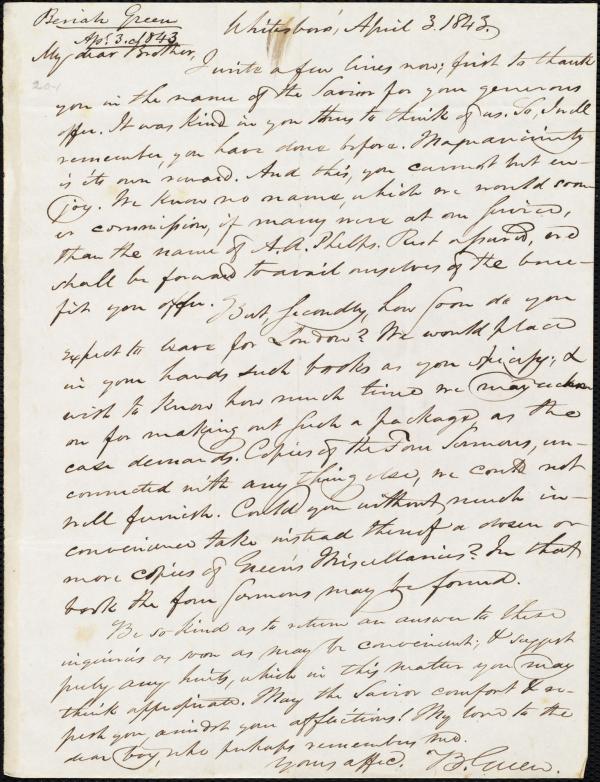 Beriah Green
Ap. 3. 1843
Whitesboro', April 3. 1843.
My dear Brother,
I write a few lines now; first to thank
you in the name of the Savior for your generous
offer. It was kind in you thus to think of us. So, I well
remember, you have done before. Magnanimity
is its own reward. And this, you cannot but en-
joy. We know no name, which we would soon-
er commission, if many were at our service,
than the name of A. A. Phelps. Rest assured, we
shall be forward to avail ourselves of the bene-
fit you offer. But secondly, how soon do you
expect to leave for London? We would place
in your hands such books as you specify; &
wish to know how much time we may reckon
on for making out such a package, as the
case demands. Copies of the Four Sermons, un-
connected with any thing else, we could not
well furnish. Could you without much in-
convenience take instead thereof a dosen or
more copies of Green's Miscellanies? In that
book the four Sermons may be found.
Be so kind as to return an answer to these
inquiries as soon as may be convenient; & suggest
freely any hints, which in this matter you may
think appropriate. May the Savior comfort &
you amidst your afflictions! My love to the
dear boy, who perhaps remembers me.
Yours affec. B. Green.
204